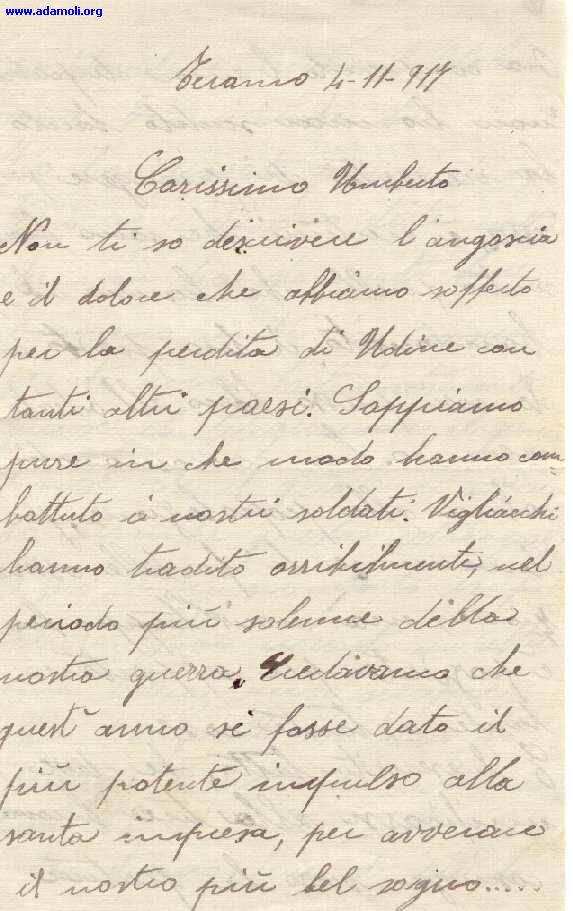 www.adamoli.org
Teramo 4-11-917
Carissimo Umberto
Non ti so descrivere l'angoscia
e il dolore che abbiamo sofferto
per la perdita di Udine con
tanti altri paesi. Sappiamo
pure in che modo hanno com
battuto i nostri soldati. Vigliacchi
hanno tradito orribilmente, nel
periodo più solenne della
nostra guerra. Credavamo che
quest'anno si fosse dato il
più potente impulso alla
santa impresa, per avverare
il nostro più bel sogno.....